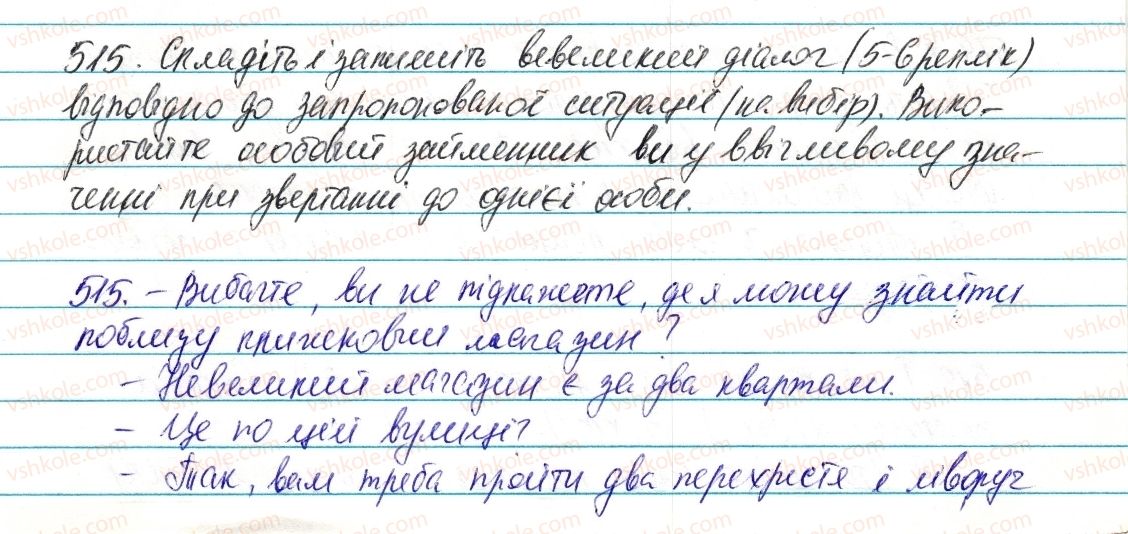 515. Складіть і запишіть невеликий діалог (5-6 реплік)
відповідно до запропонованої ситуації (на вибір). Вико-
ристайте особовий займенник ви у ввічливому зна-
ченні при звертанні до однієї особи.
515. – Вибачте, ви не підкажете, де я можу знайти
поблизу прижековий магазин?
– Невеликий магазин є за два квартали.
– Це по цій вулиці?
– Так, вам треба пройти два перехрестя і ліворуч